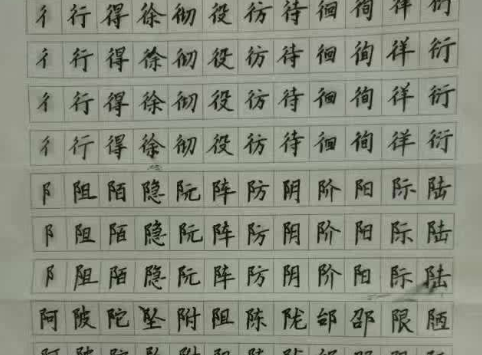 彳行得徐彻役彷待徊徇徉衍
彳行得徐彻役彷待徊徇徉衍
彳行得徐彻役彷待徊徇徉衍
彳行得徐彻役彷待徊徇徉衍
阝阻陌隐阮阵防阴阶阳际陆
阝阻陌隐阮阵防阴阶阳际陆
阝阻陌隐阮阵防阴阶阳际陆
阿陂陀坠附阻陈陇邰邵限陋